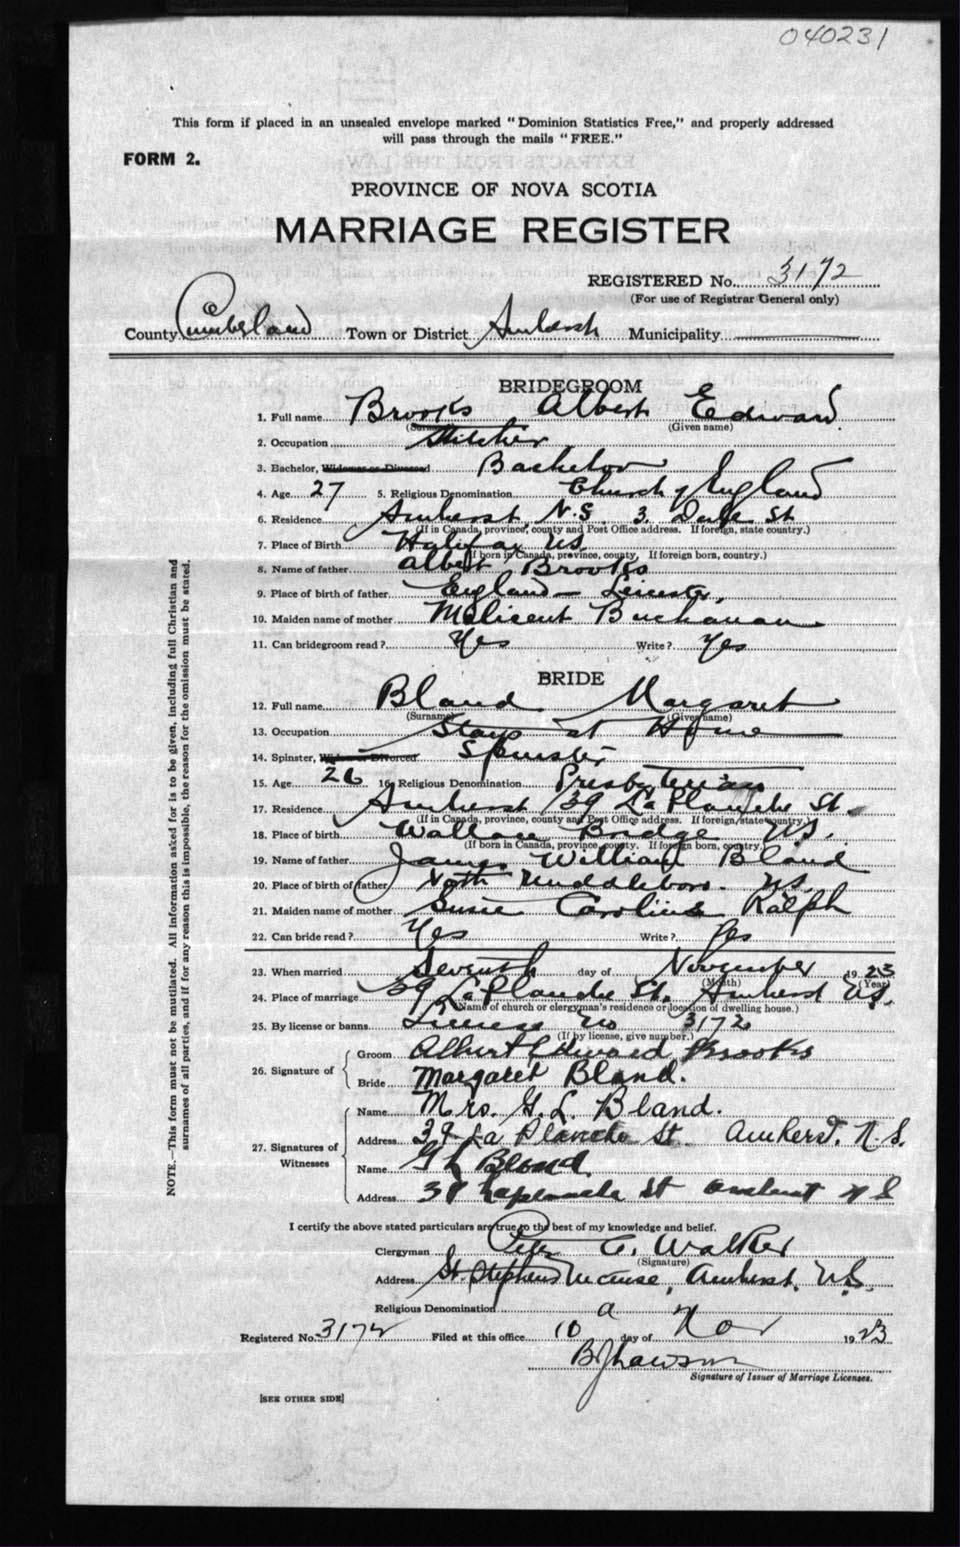 040231
This form if placed in an unsealed envelope marked "Dominion Statistics Free," and properly addressed
will pass through the mails "FREE."
FORM 2.
PROVINCE OF NOVA SCOTIA
MARRIAGE REGISTER
REGISTERED No. 3172
(For use of Registrar General only)
County Cumberland Town or District Amherst Municipality
BRIDEGROOM
1. Full name Brooks Albert Edward
(Surname) (Given name)
2. Occupation Stitcher
3. Bachelor, Widower or Divorced Bachelor
4. Age 27 5. Religious Denomination Church of England
6. Residence Amherst N.S. 3. Dale St
(If in Canada, province, county and Post Office address. If foreign, state country.)
7. Place of Birth Halifax NS.
(If born in Canada, province, county. If foreign born, country.)
8. Name of father Albert Brooks
9. Place of birth of father England - Leicester.
10. Maiden name of mother Melicent Buchanan
11. Can bridegroom read? Yes Write? Yes
BRIDE
12. Full name Bland Margaret
(Surname) (Given name)
13. Occupation Stays at Home
14. Spinster, Widow or Divorced Spinster
15. Age 26 16. Religious Denomination Presbyterian
17. Residence Amherst 39 La Planche St.
(If in Canada, province, county and Post Office address. If foreign, state country.)
18. Place of birth Wallace Bridge NS.
(If born in Canada, province, county. If foreign born, country.)
19. Name of father James William Bland
20. Place of birth of father North Middleboro. NS.
21. Maiden name of mother Susie Caroline Ralph
22. Can bride read? Yes Write? Yes
23. When married Seventh day of November 1923
(Month) (Year)
24. Place of marriage 39 La Planche St. Amherst NS.
(Name of church or clergyman's residence or location of dwelling house.)
25. By license or banns License No 3172
(If by license, give number.)
26. Signature of Groom Albert Edward Brooks
Bride Margaret Bland.
27. Signatures of Witnesses Name Mrs. G. L. Bland.
Address 39 La Planche St. Amherst. N.S.
Name G L Bland
Address 39 Laplanche St Amherst N S
I certify the above stated particulars are true to the best of my knowledge and belief.
Clergyman Peter C. Walker
(Signature)
Address St. Stephens Manse, Amherst, N.S.
Religious Denomination
Registered No. 3172 Filed at this office 10 day of Nov 1923
Signature of Issuer of Marriage Licenses.
[SEE OTHER SIDE]
NOTE.—This form must not be mutilated. All information asked for is to be given, including full Christian and
surnames of all parties, and if for any reason this is impossible, the reason for the omission must be stated.